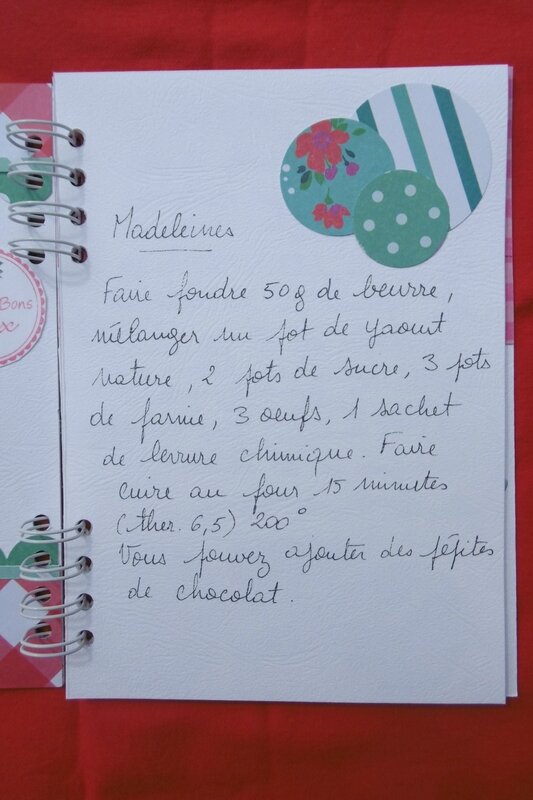 Madeleines
Faire fondre 50g de beurre,
mélanger un pot de yaourt
nature, 2 pots de sucre, 3 pots
de farine, 3 oeufs, 1 sachet
de levure chimique. Faire
cuire au four 15 minutes
(ther. 6,5) 200°
Vous pouvez ajouter des pépites
de chocolat.
Bons